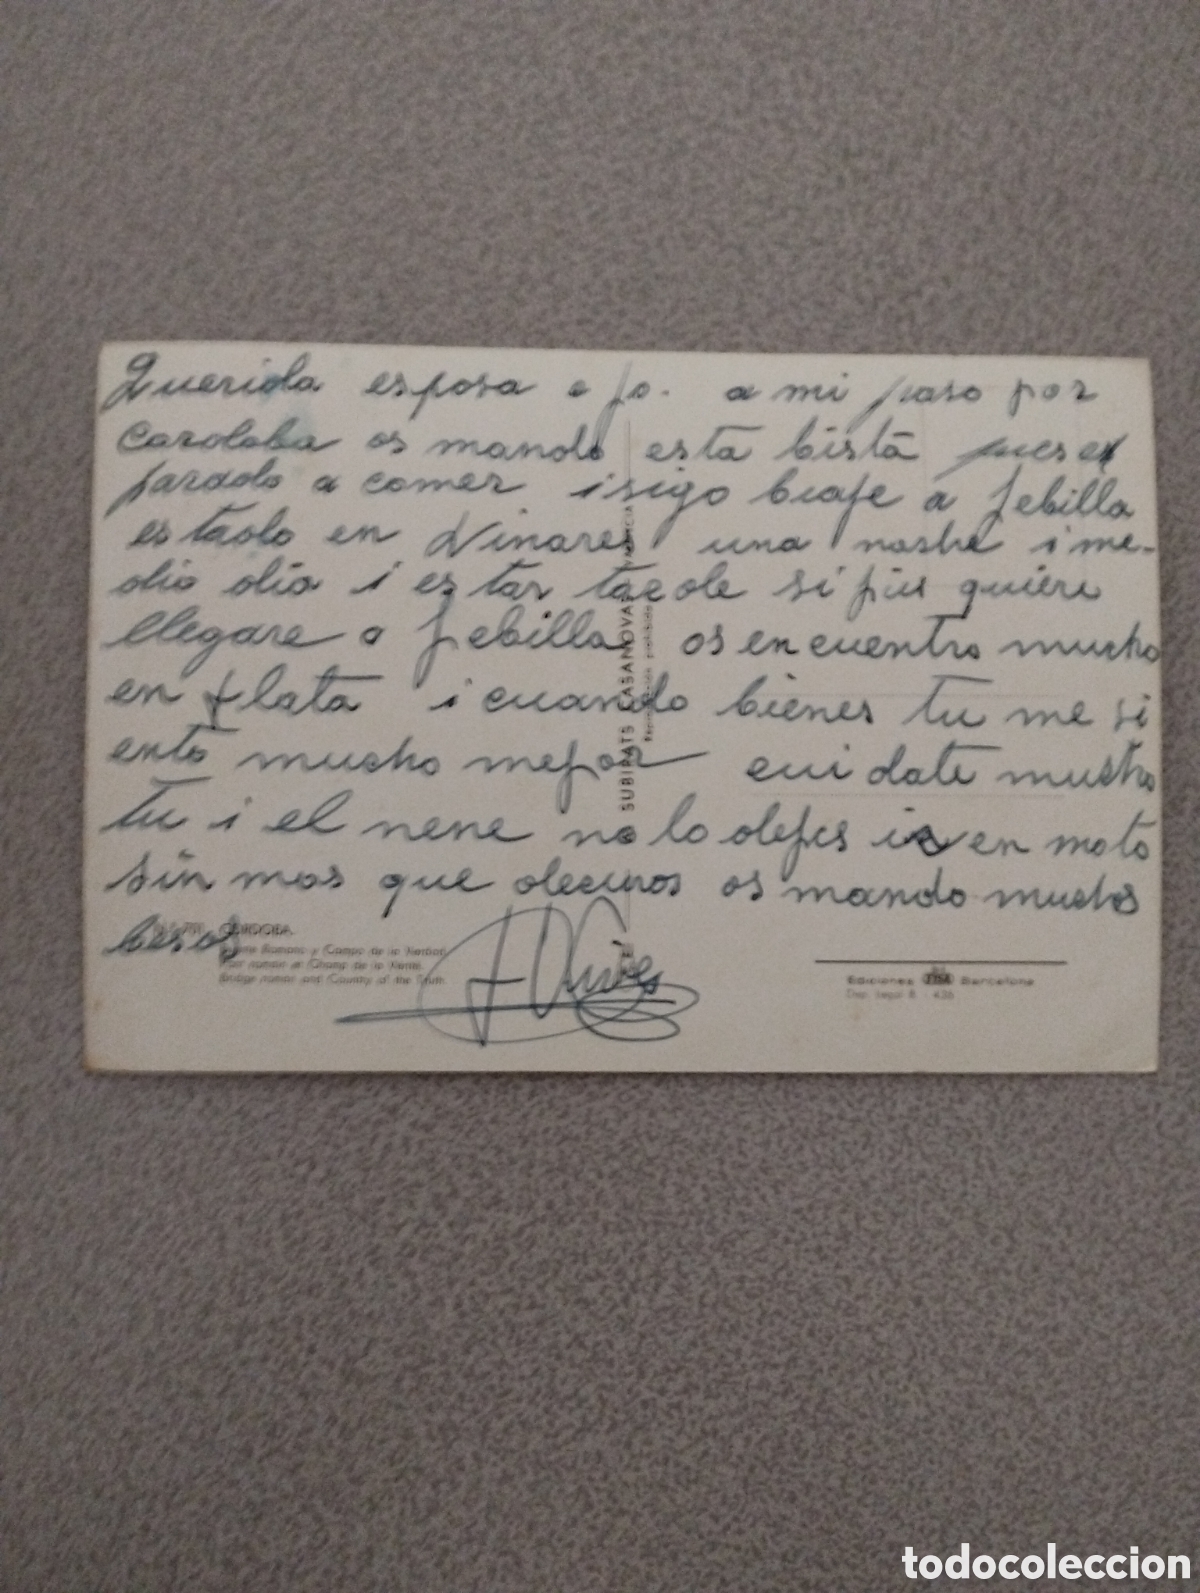 Querida esposa e Jo. a mi paso por
Cardoba os mando esta bistá pues e
parado a comer i sigo biaje a Sebilla
estado en Linares una noshe i me-
dio dia i estar tarde si
quiere
llegare a Sebilla os encuentro mucho
en falata i cuando bienes tu me si
ento mucho mejor cuidate mucho
tu i el nene no lo dejes ir en moto
sin mas que deciros os mando muchos
besos
CORDOBA
Puente Romano y Campo de la Verdad
Pont romain et Champ de la Verité
Bridge roman and Country of the Truth
SUBIRATS CASANOVAS
Reproducción prohibida
Ediciones Barcelona
Dep. Legal B. 436
todocoleccion